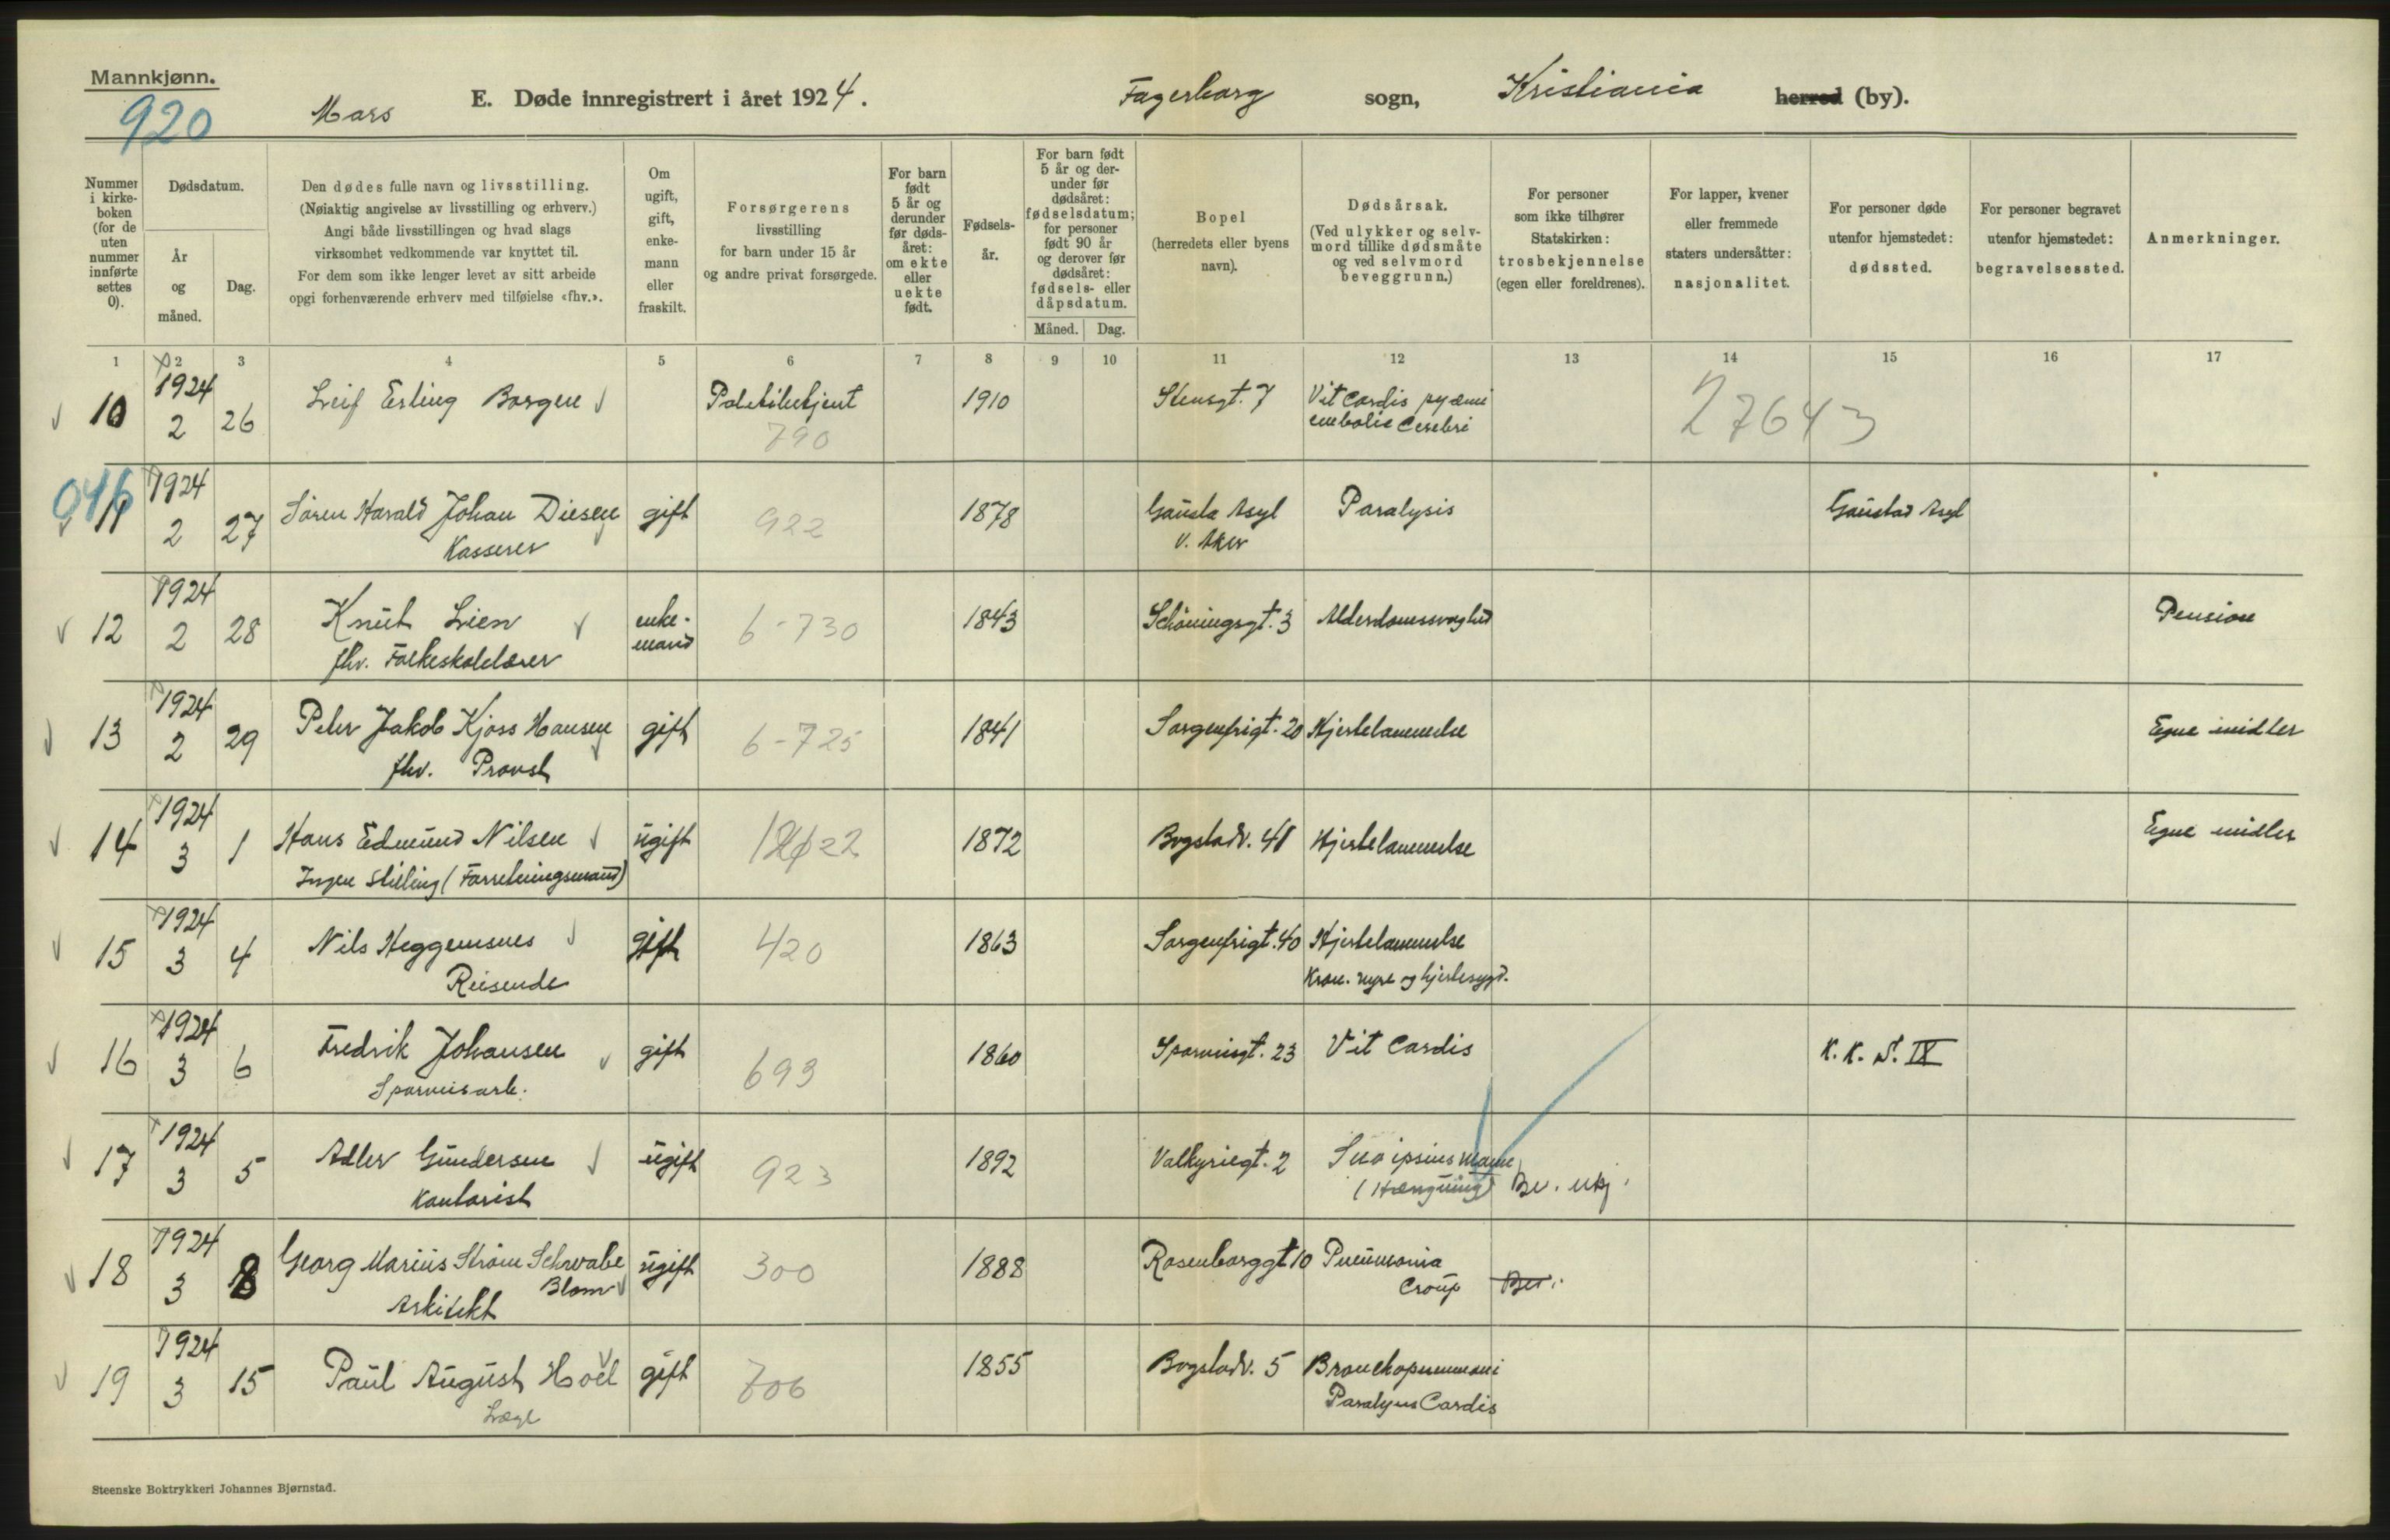 Mannkjønn.
920
Mars
E. Døde innregistrert i året 1924.
Fagerborg sogn, Kristiania herred (by).
Nummer i kirkeboken (for de uten nummer innførte settes 0).
Dødsdatum.
År og måned.
Dag.
Den dødes fulle navn og livsstilling.
(Nøiaktig angivelse av livsstilling og erhverv.)
Angi både livsstillingen og hvad slags
virksomhet vedkommende var knyttet til.
For dem som ikke lenger levet av sitt arbeide
opgi forhenværende erhverv med tilføielse «fhv.».
Om ugift, gift, enkemann eller fraskilt.
Forsørgerens
livsstilling
for barn under 15 år
og andre privat forsørgede.
For barn født 5 år og derunder før dødsåret: om ekte eller uekte født.
Fødselsår.
For barn født 5 år og derunder før dødsåret: fødselsdatum; for personer født 90 år og derover før dødsåret: fødsels- eller dåpsdatum.
Måned. Dag.
Bopel
(herredets eller byens navn).
Dødsårsak.
(Ved ulykker og selvmord tillike dødsmåte og ved selvmord beveggrunn.)
For personer som ikke tilhører Statskirken: trosbekjennelse (egen eller foreldrenes).
For lapper, kvener eller fremmede staters undersåtter: nasjonalitet.
For personer døde utenfor hjemstedet: dødssted.
For personer begravet utenfor hjemstedet: begravelsessted.
Anmerkninger.
1 2 3 4 5 6 7 8 9 10 11 12 13 14 15 16 17
10 1924 2 26 Leif Erling Borgen Politibetjent 1910 Stensgt. 7 Vit cordis pyæmi
790 embolie Cerebri 27643
11 1924 2 27 Sören Harald Johan Diesen gift 922 1878 Gausta Asyl Paralysis Gaustad Asyl
Kasserer v. Aker
12 1924 2 28 Knut Lien enkemand 6-730 1843 Schöningsgt. 3 Alderdomssvaghed Pension
fhv. Folkeskolelærer
13 1924 2 29 Peter Jakob Kjöss Hansen gift 6-725 1841 Sorgenfrigt. 20 Hjertelammelse Egne midler
fhv. Provst
14 1924 3 1 Hans Edmund Nilsen ugift 1872 Bogstadv. 48 Hjertelammelse Egne midler
Ingen Stilling (Forretningsmand)
15 1924 3 4 Nils Heggemsnes gift 420 1863 Sorgenfrigt. 40 Hjertelammelse
Reisende Kron. nyre og hjertesygd.
16 1924 3 6 Fredrik Johansen gift 693 1860 Sporveisgt. 23 Vit Cordis K. K. S. IX
Sporveisarb.
17 1924 3 5 Adler Gundersen ugift 923 1892 Valkyriegt. 2 Sua ipsius manu
Kontorist (Hængning) Bev. ukj.
18 1924 3 8 Georg Marius Ström Schwabe ugift 300 1888 Rosenborggt 10 Pneumonia
Blom Croup Bev.
Arkitekt
19 1924 3 15 Paul August Hoël gift 706 1855 Bogstadv. 5 Bronchopneumoni
Læge Paralysis Cordis
Steenske Boktrykkeri Johannes Bjørnstad.